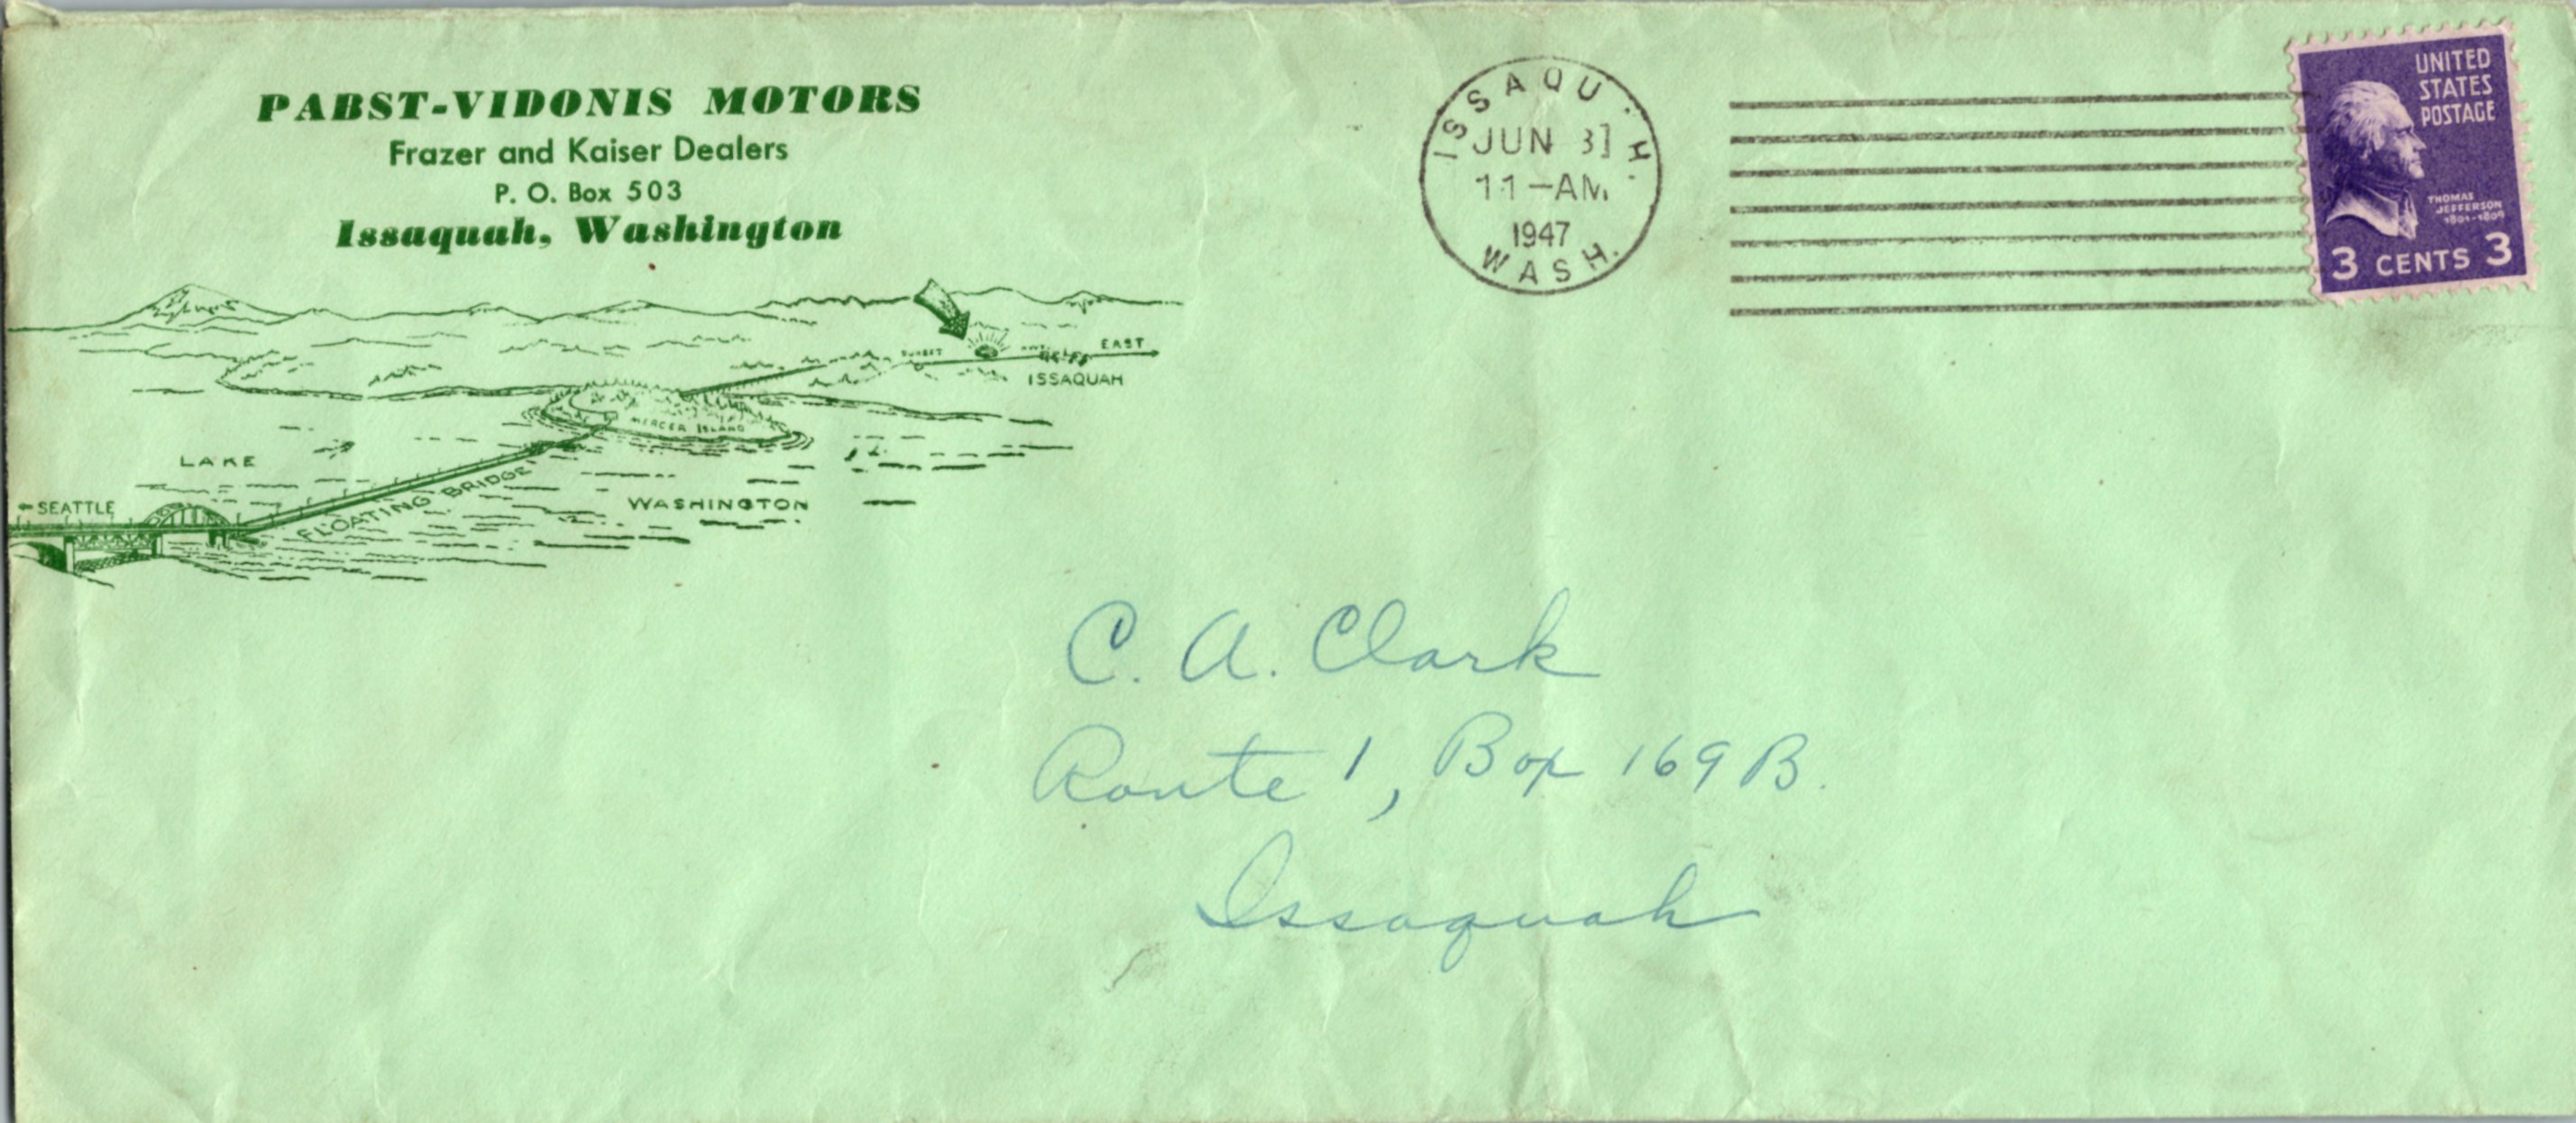 PABST-VIDONIS MOTORS
Frazer and Kaiser Dealers
P. O. Box 503
Issaquah, Washington
SUNSET
EAST
ISSAQUAH
MERCER ISLAND
LAKE
WASHINGTON
SEATTLE
FLOATING BRIDGE
ISSAQU H.
JUN
11-AM
1947
WASH.
UNITED
STATES
POSTAGE
THOMAS
JEFFERSON
1801-1809
3 CENTS 3
C. A. Clark
Route 1, Box 169 B.
Issaquah